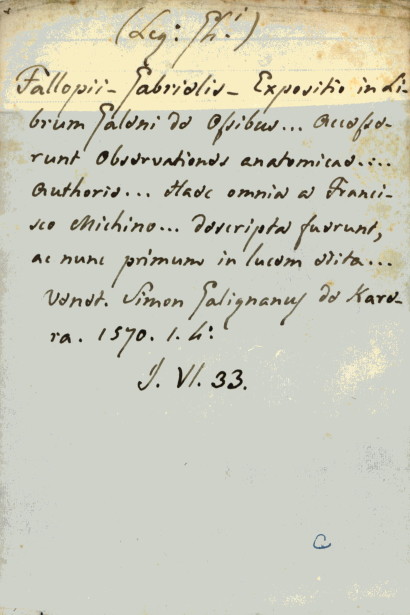 (Leg: Gh.i)
Fallopii - Gabrielis - Expositio in Li-
brum Galeni de Ossibus... Accesse-
runt Observationes anatomicae....
Authoris... Haec omnia a Franci-
sco Michino... descripta fuerunt,
ac nunc primum in lucem edita...
Venet. Simon Galignanus de Kare-
ra. 1570. 1. 4:
I. VI. 33.
C